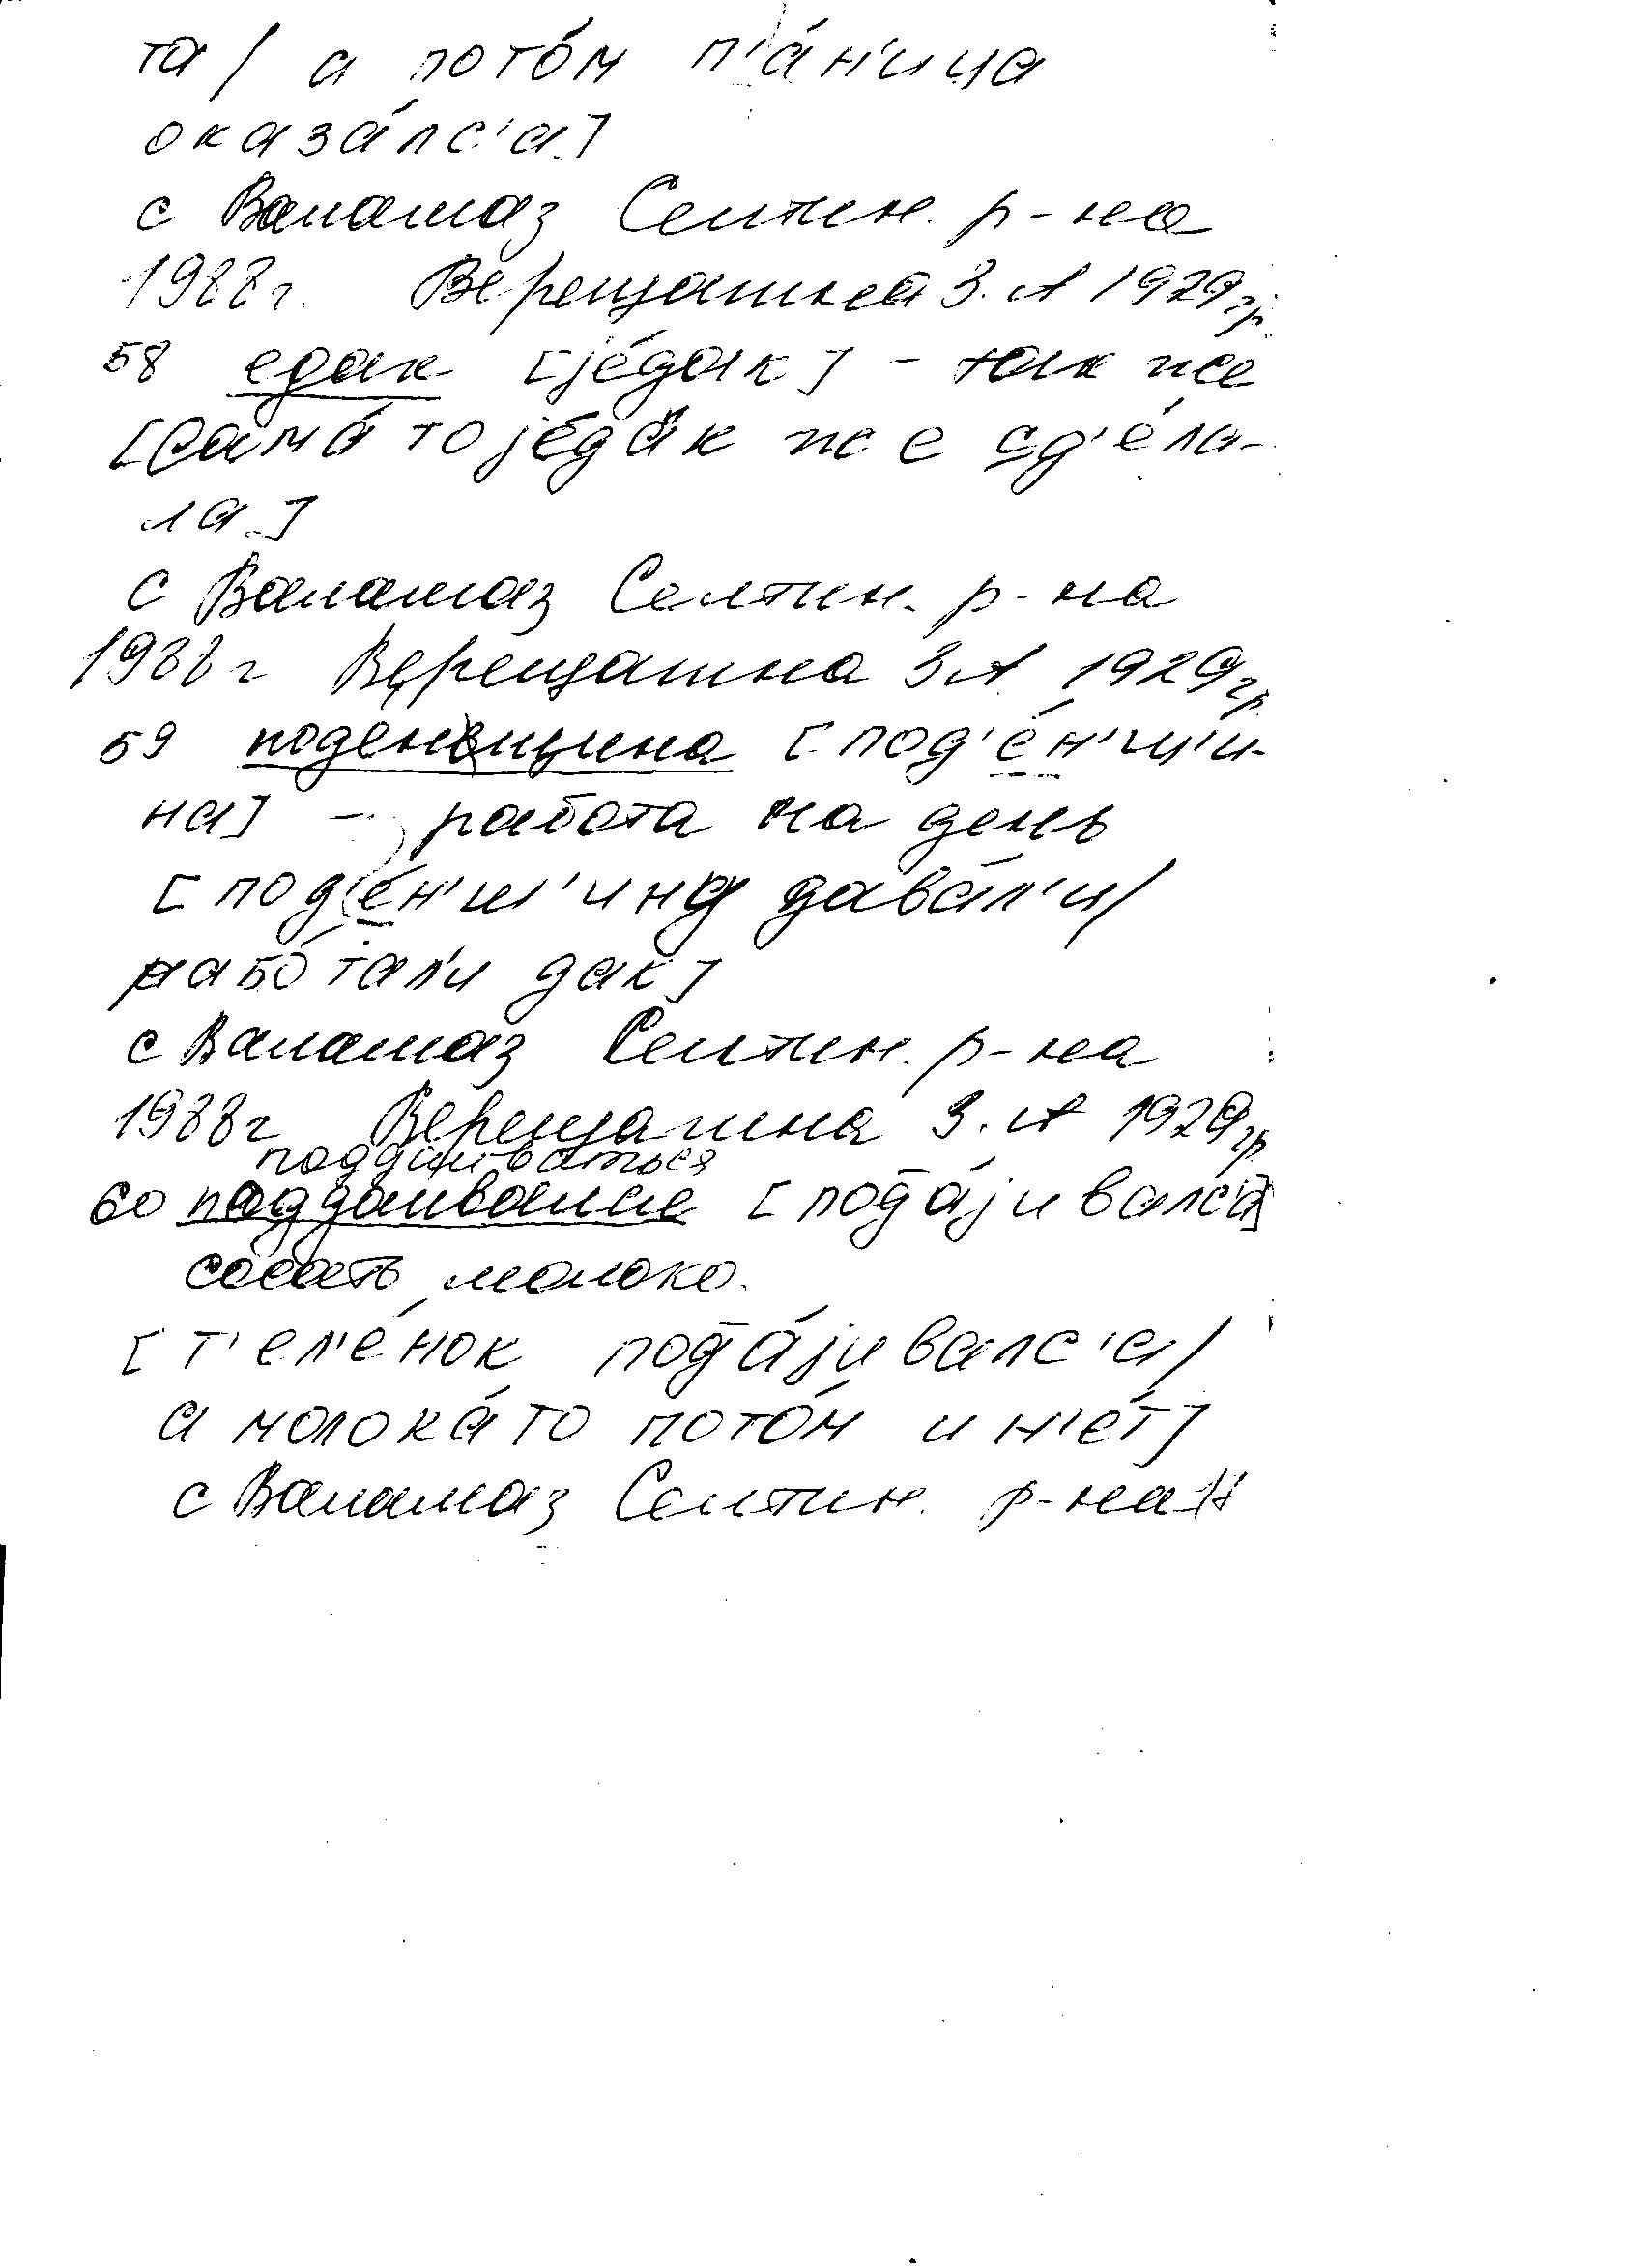 та / а пото́м п'а́н'ица
оказа́лс'а]
с Валамаз Селтин. р-на
1988г. Верещагина З. А 1929 гр.
58 едак [jéдак] – так же
[сама́ то jéдак же сд'е́ла-
ла]
с Валамаз Селтин. р-на
1988 г Верещагина З А 1929 гр
59 поденщина [под'е́н'ш'и-
на] – работа на день
[под'е́н'ш'ину дава́л'и /
рабо́тал'и дак]
с Валамаз Селтин. р-на
1988г Верещагина З. А 1929 гр
поддаиваться
60 поддаивание [под̄а́jивалс'а]
сосать молоко.
[т'ел'е́нок под̄а́jивалс'а /
а молока́ то пото́м и н'е́т]
с Валамаз Селтин. р-на